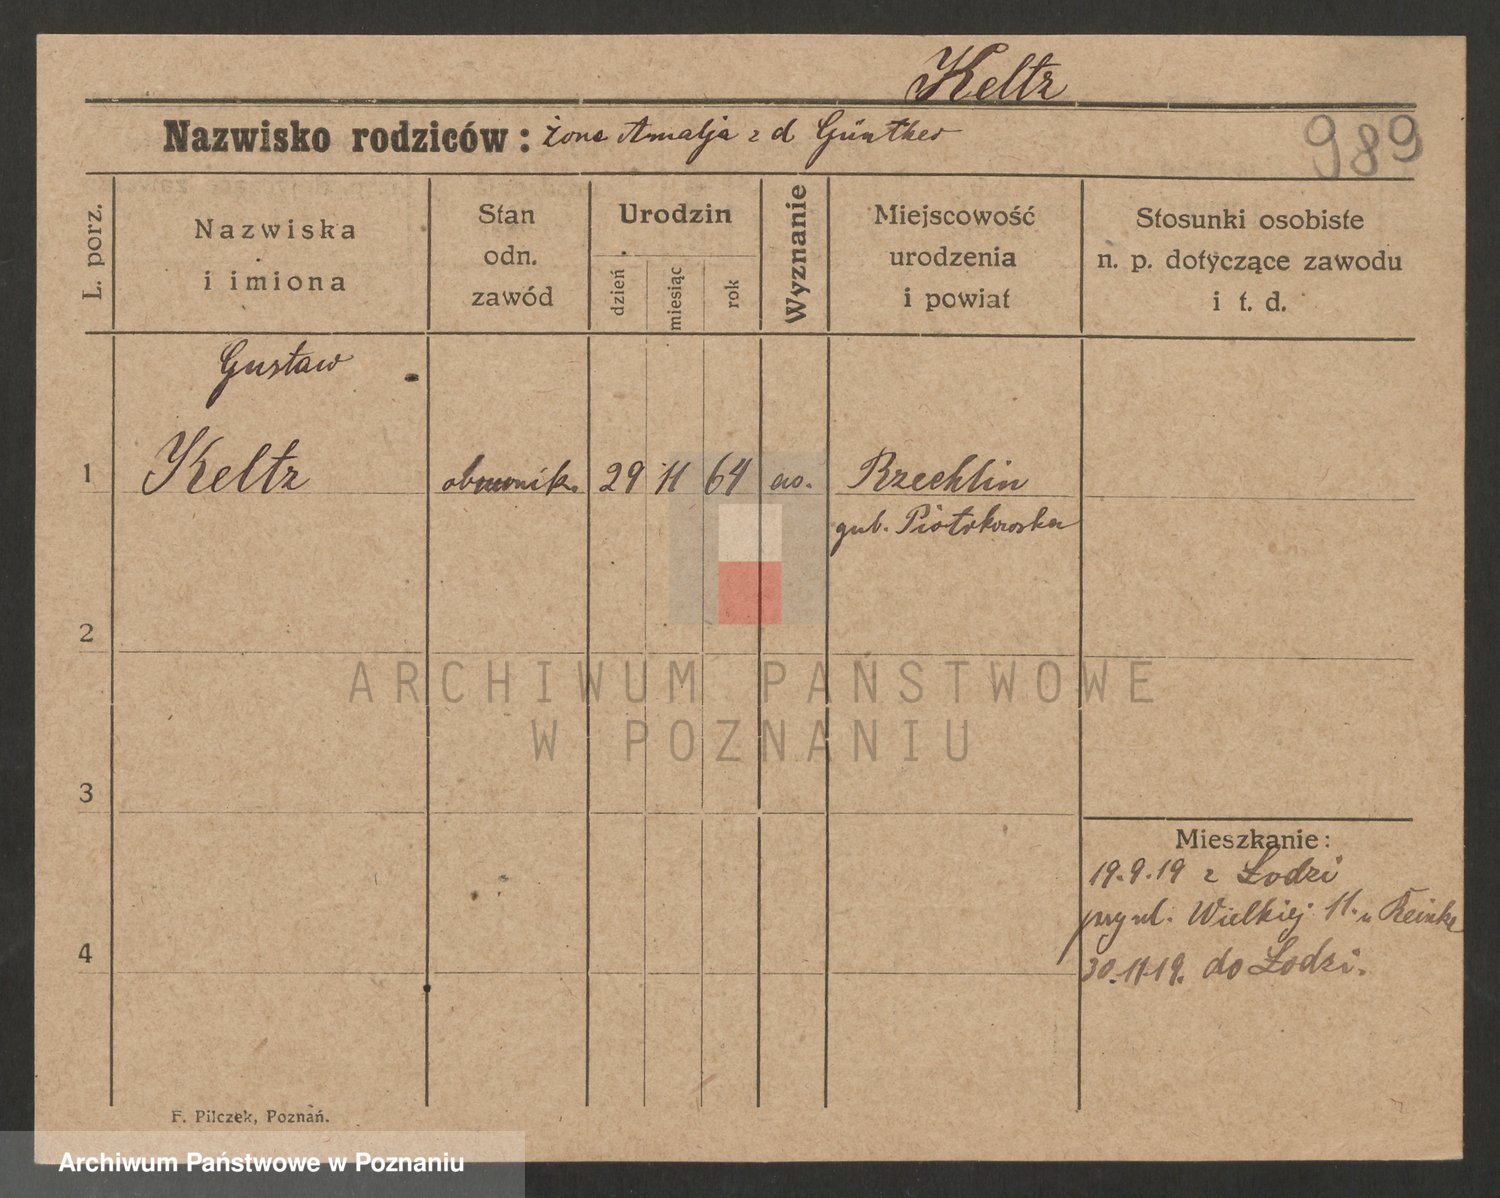 Keltz
Nazwisko rodziców: żona Amalja z d Günther
989
L. porz.
Nazwiska
i imiona
Stan
odn.
zawód
Urodzin
dzień
miesiąc
rok
Wyznanie
Miejscowość
urodzenia
i powiat
Stosunki osobiste
n. p. dotyczące zawodu
i t. d.
Gustaw
1 Keltz 29 11 64 Rzechlin
gub. Piotrkowska
2
ARCHIWUM PAŃSTWOWE
W POZNANIU
3
Mieszkanie:
19.9.19 z Łodzi
ul. Wielkiej 11. u Reinke
4
30.11.19. do Łodzi.
F. Pilczek, Poznań.
Archiwum Państwowe w Poznaniu